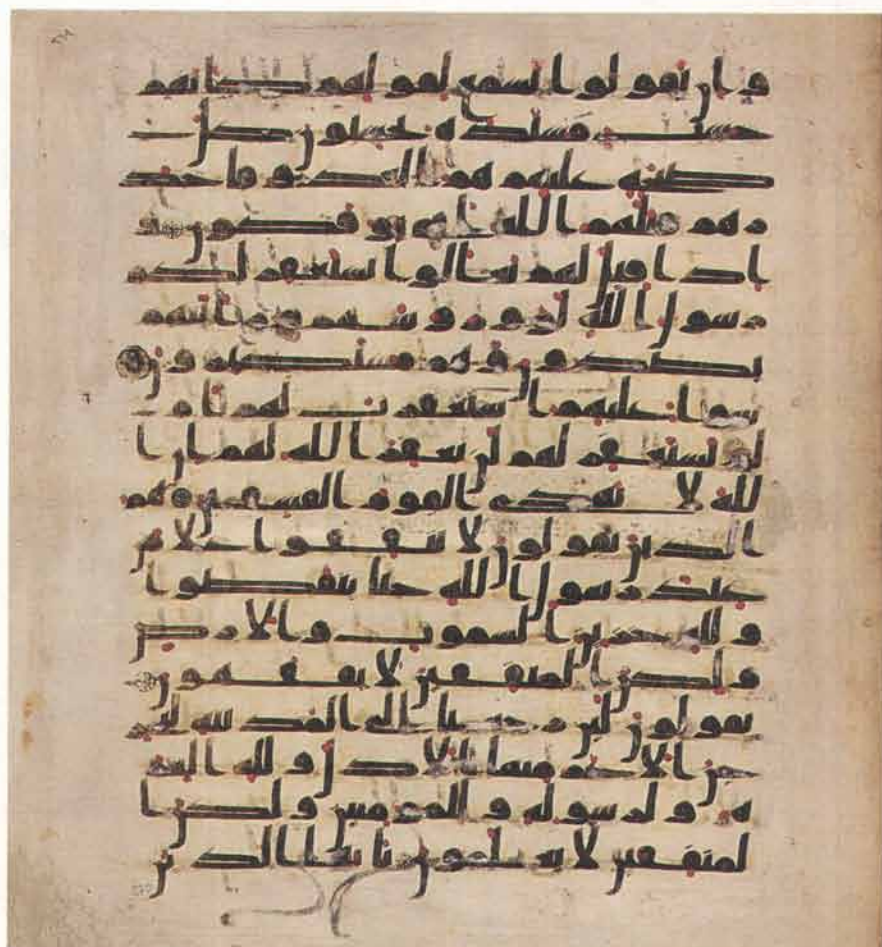 وان يقولوا تسمع لقولهم كانهم
خشب مسنده يحسبون كل
صيحه عليهم هم العدو فاحذ
رهم قتلهم الله انى يوفكون و
اذا قيل لهم تعالوا يستغفر لكم
رسول الله لووا روسهم ورايتهم
يصدون وهم مستكبرون
سوا عليهم استغفرت لهم ام
لم تستغفر لهم لن يغفر الله لهم ان ا
لله لا يهدى القوم الفسقين هم
الذين يقولون لا تنفقوا على من
عند رسول الله حتى ينفضوا
ولله خزين السموت والارض
ولكن المنفقين لا يفقهون
يقولون لين رجعنا الى المدينه ليخر
جن الاعز منها الاذل ولله العز
ه ولرسوله وللمومنين ولكن ا
لمنفقين لا يعلمون يايها الذين